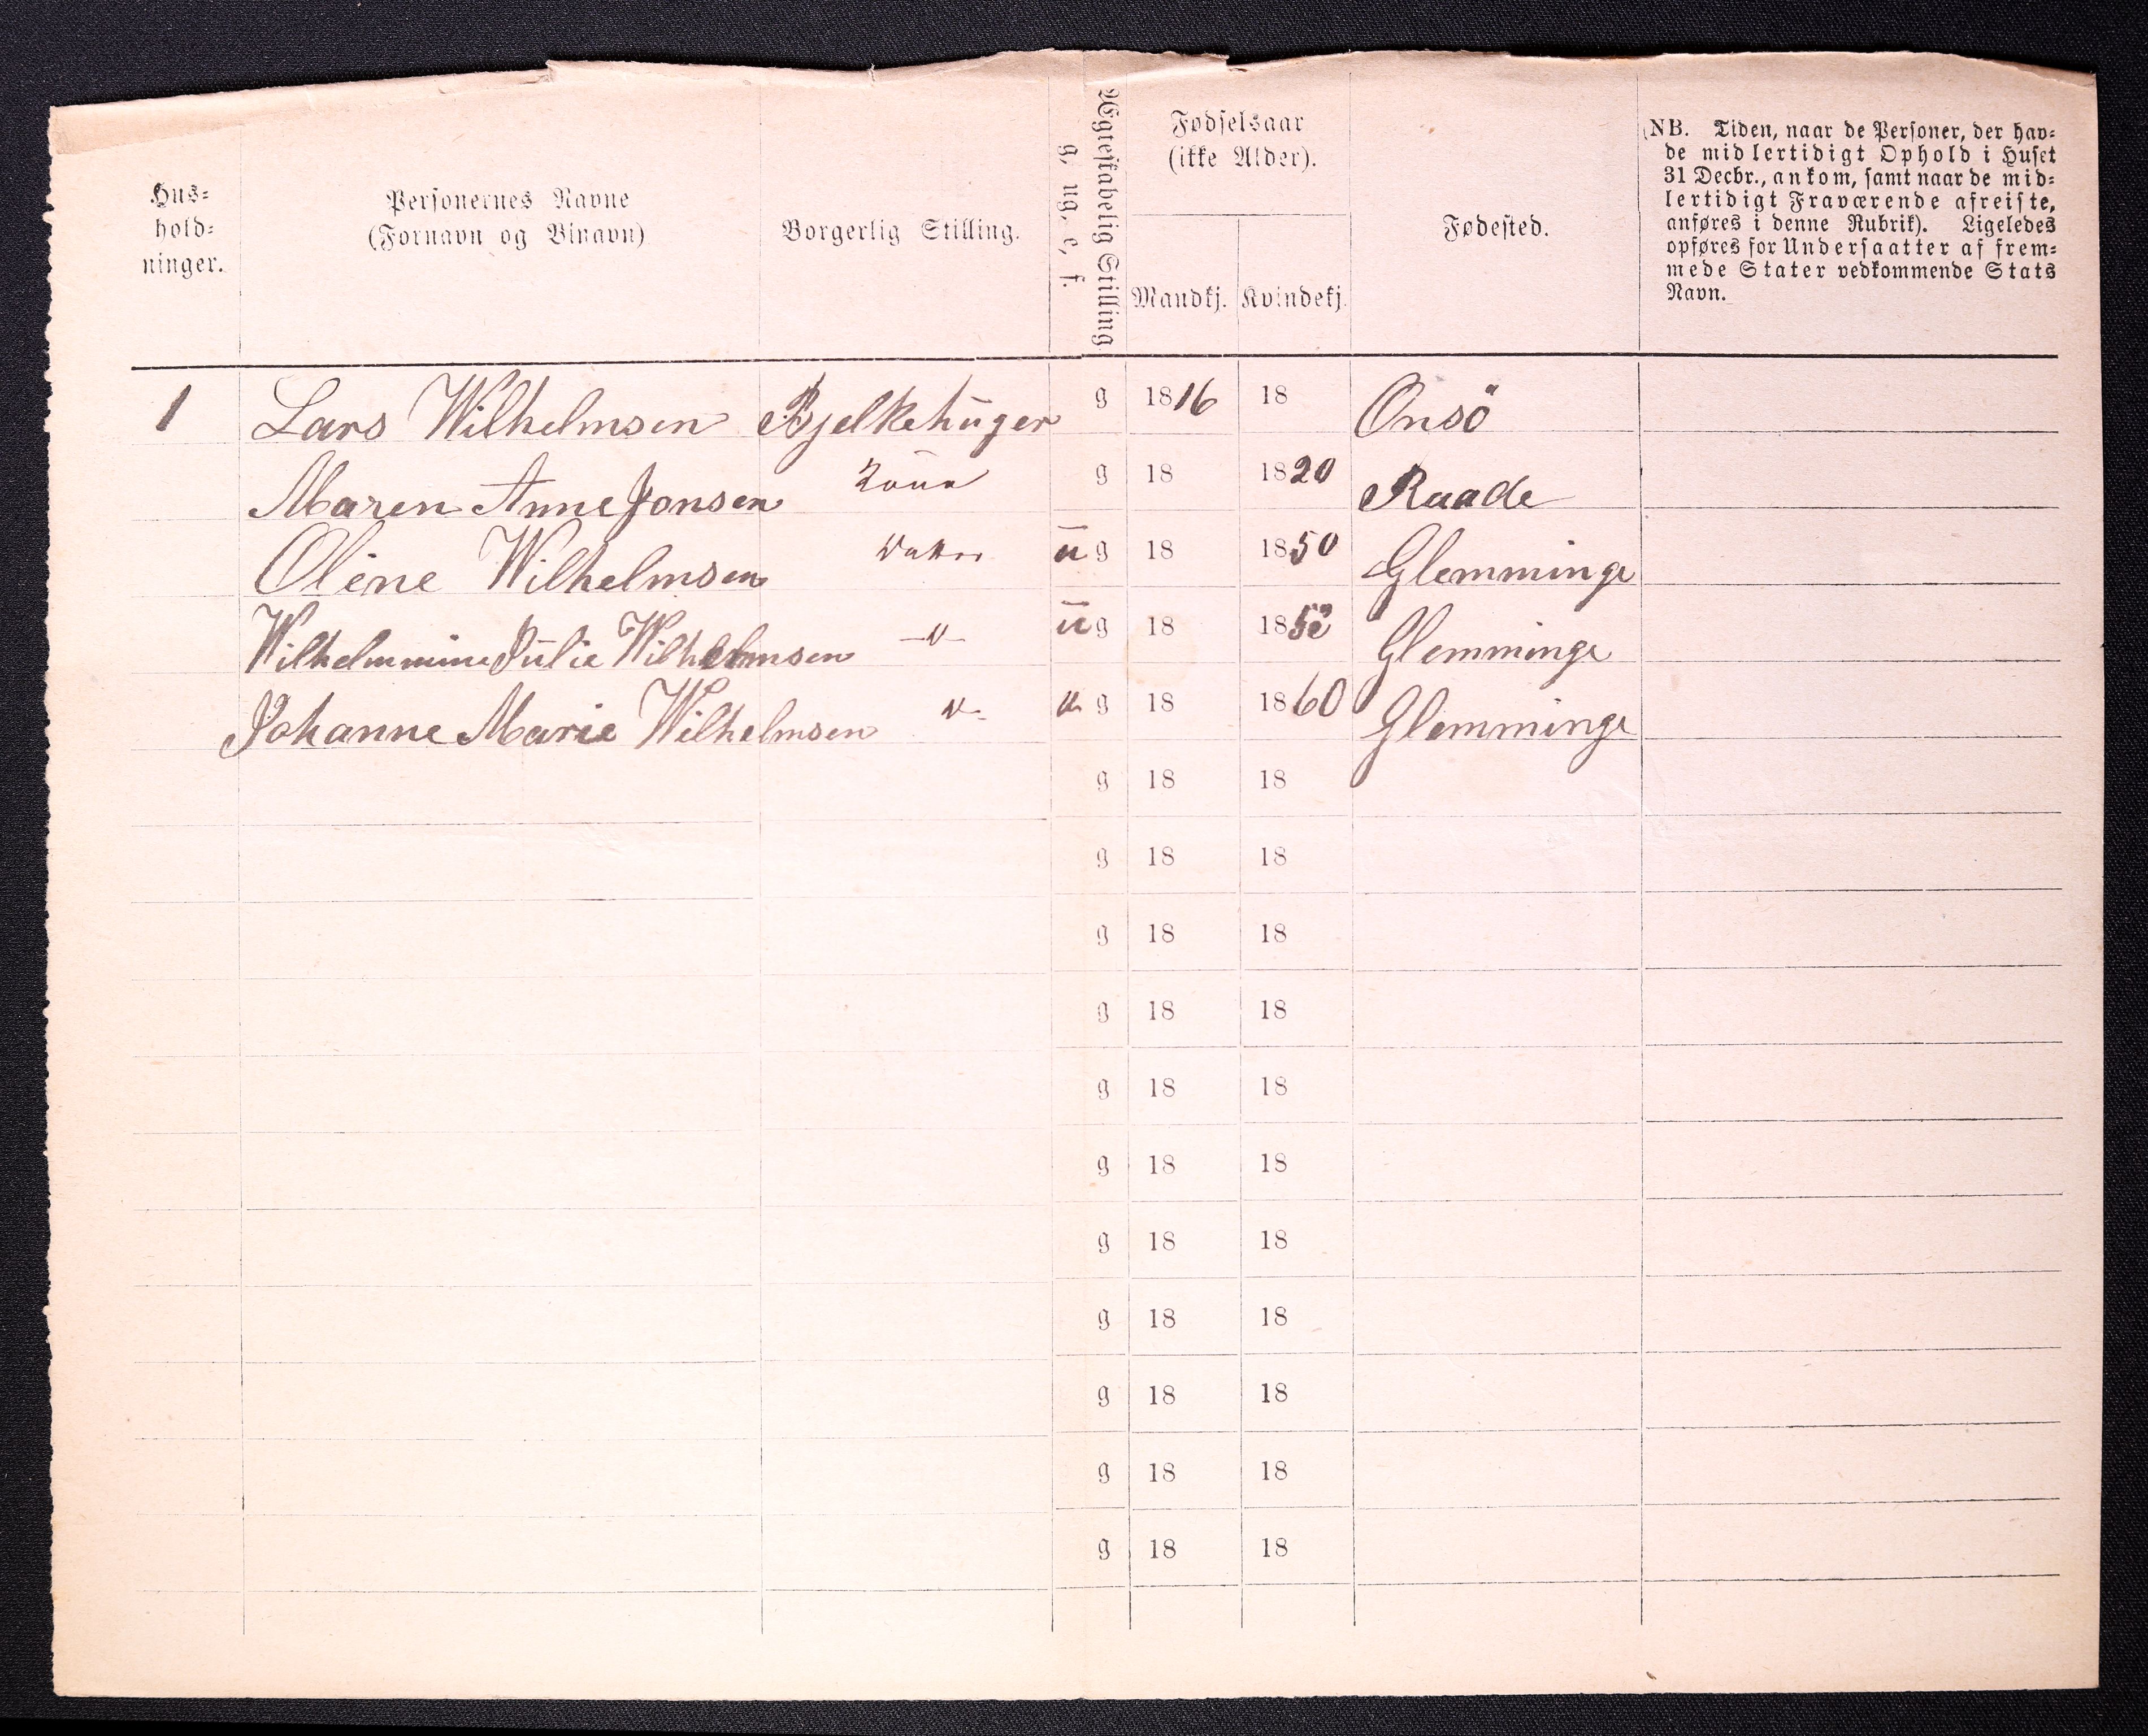 Hus-
hold-
ninger.
Personernes Navne
(Fornavn og Binavn)
Borgerlig Stilling.
Ægteskabelig Stilling
g, ug, e, f.
Fødselsaar
(ikke Alder).
Mandkj. Kvindekj.
Fødested.
(NB. Tiden, naar de Personer, der hav-
de midlertidigt Ophold i Huset
31 Decbr., ankom, samt naar de mid-
lertidigt Fraværende afreiste,
anføres i denne Rubrik). Ligeledes
opføres for Undersaatter af frem-
mede Stater vedkommende Stats
Navn.
1 Lars Wilhelmsen Bjelkehuger g 1816 18 Onsö
Maren Anne Jonsen Kone g 18 1820 Raade
Oline Wilhelmsen Datter ug 18 1850 Glemminge
Wilhelmmine Julie Wilhelmsen –"– ug 18 18 Glemminge
Johanne Marie Wilhelmsen " ug 18 1860 Glemminge
g 18 18
g 18 18
g 18 18
g 18 18
g 18 18
g 18 18
g 18 18
g 18 18
g 18 18
g 18 18
g 18 18